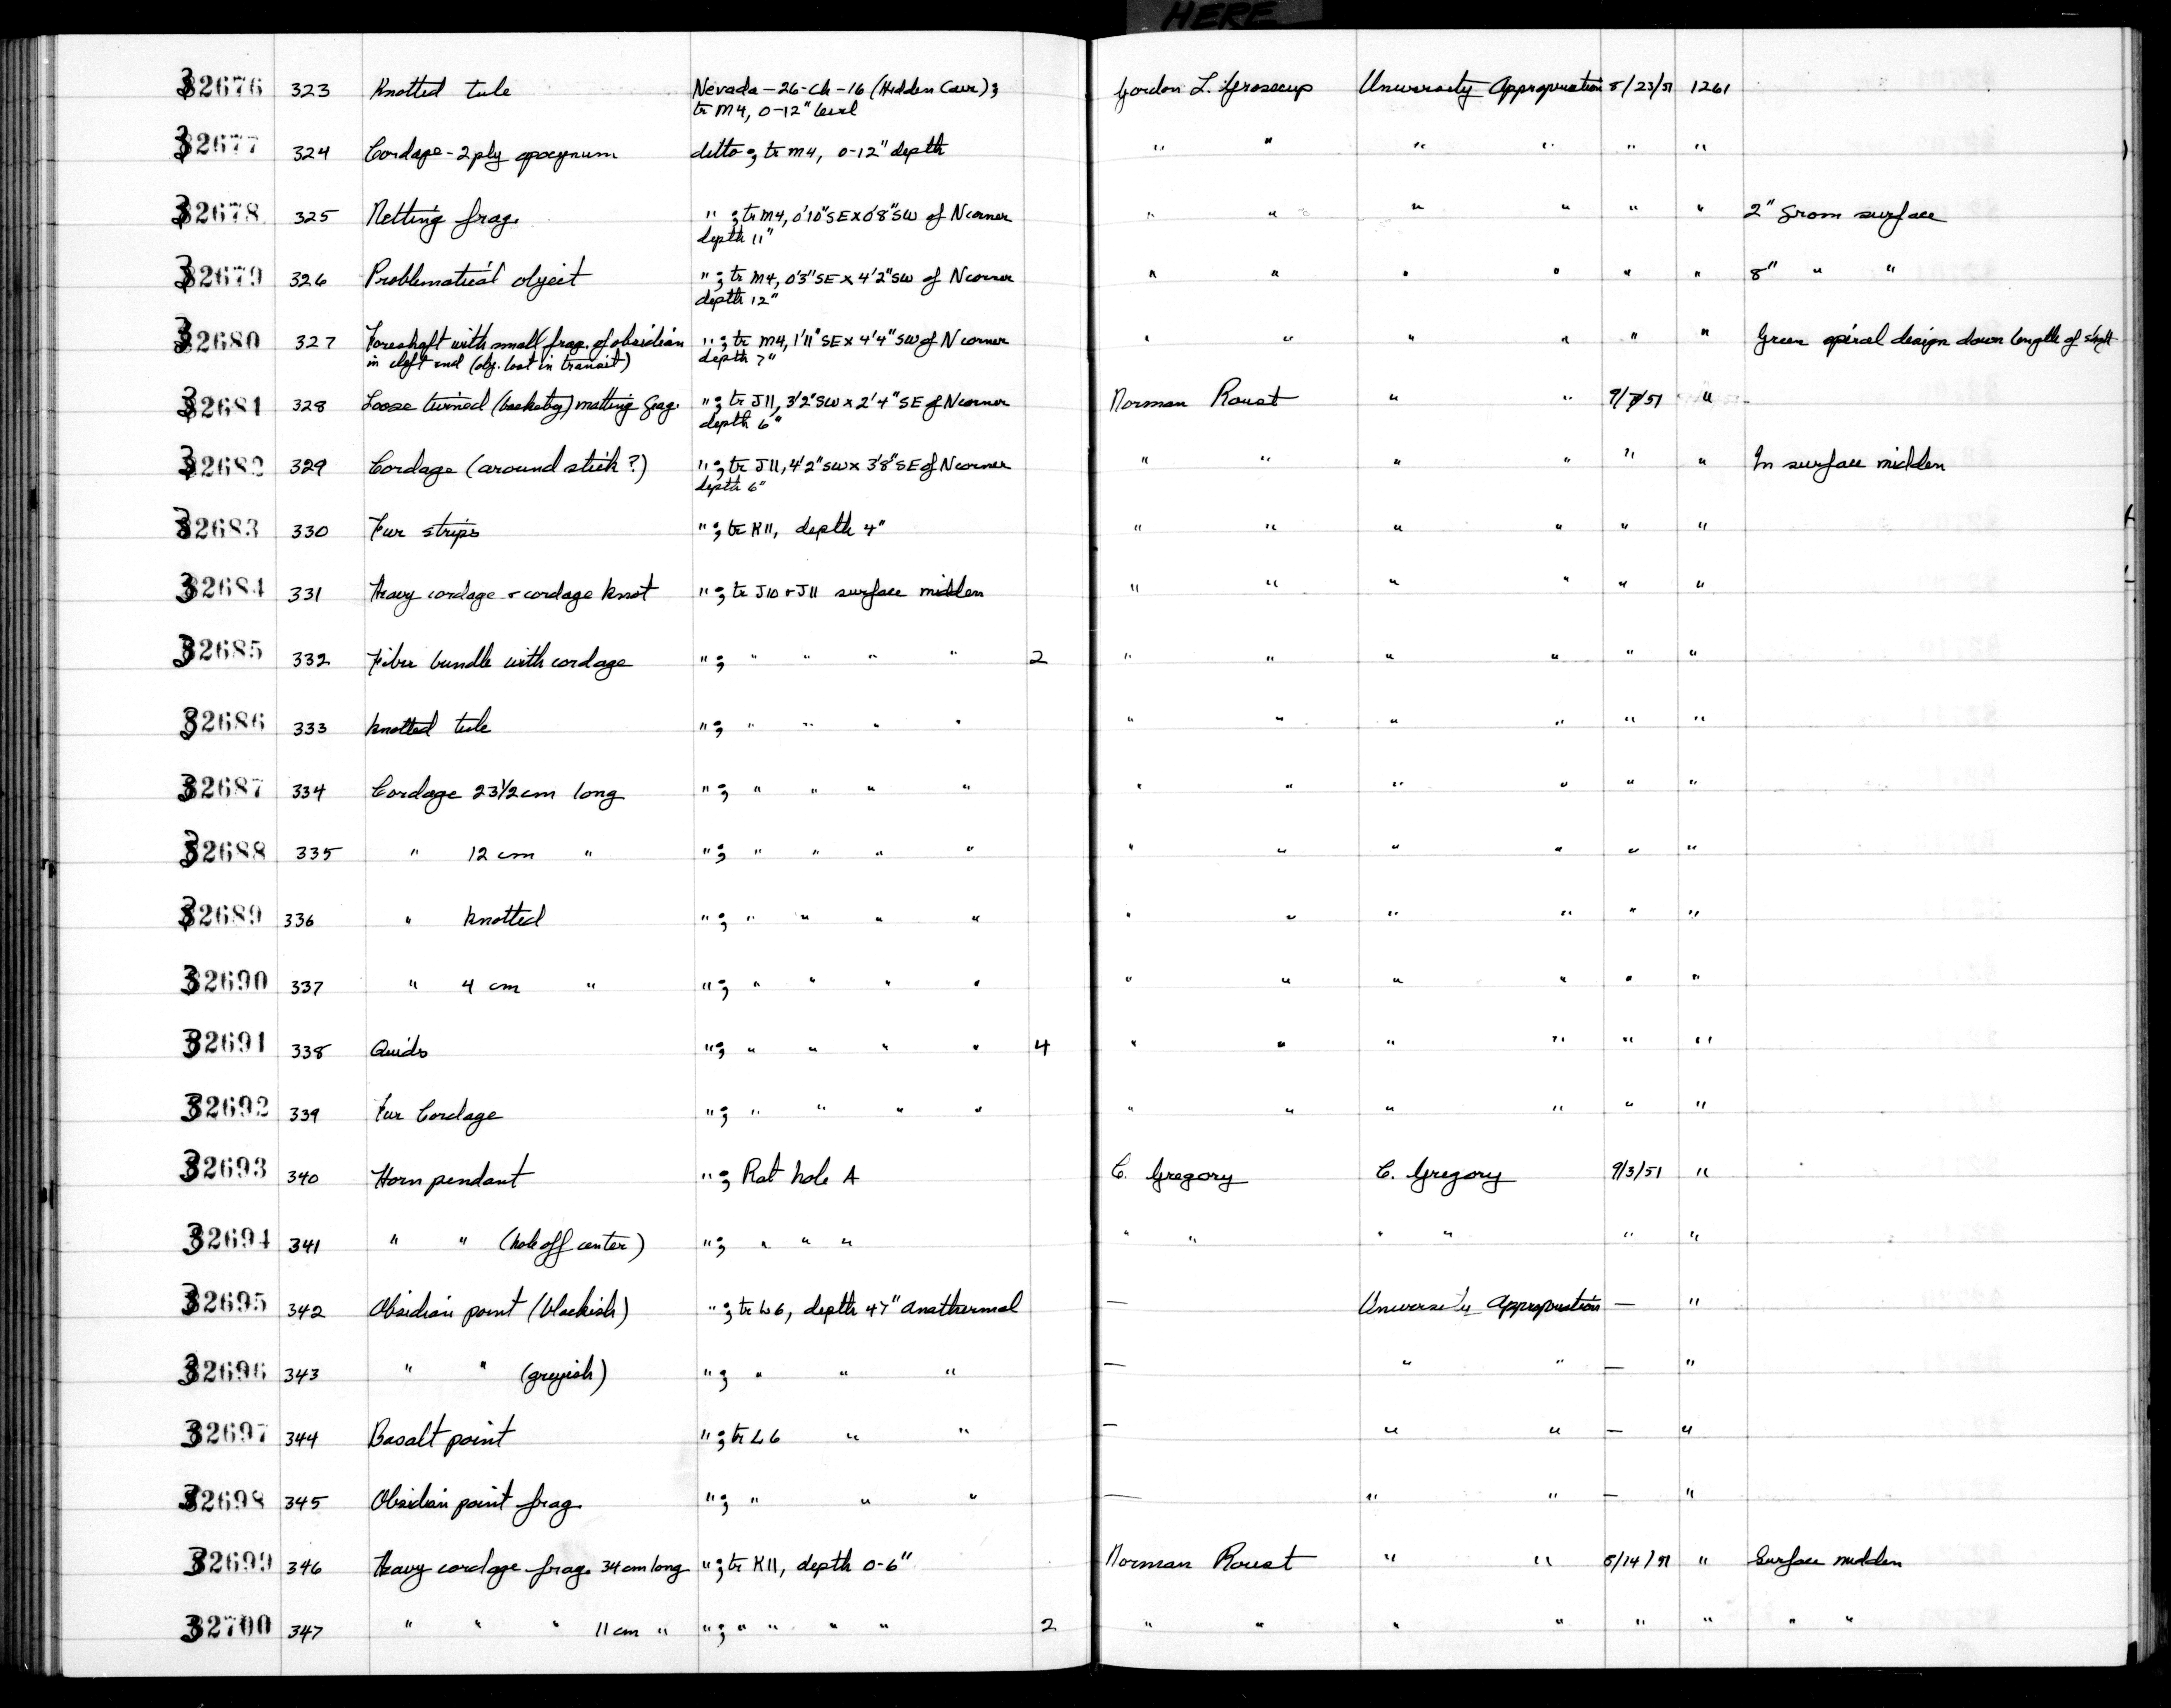 HERE
32676 323 Knotted tule Nevada-26-Ch-16 (Hidden Cave); Gordon L. Grosscup University Appropriation 8/23/51 1261
tr M4, 0-12" level
32677 324 Cordage-2 ply apocynum ditto; tr M4, 0-12" depth " " " " " "
32678 325 Netting frag. "; tr M4, 0'10"SE x 0'8"SW of N corner " " " " " " 2" from surface
depth 11"
32679 326 Problematical object "; tr M4, 0'3"SE x 4'2"SW of N corner " " " " " " 8" " "
depth 12"
32680 327 Foreshaft with small frag. of obsidian "; tr M4, 1'11"SE x 4'4"SW of N corner " " " " " " Green spiral design down length of shaft
in cleft end (obj. lost in transit) depth 7"
32681 328 Loose twined (basketry) matting frag. "; tr J11, 3'2"SW x 2'4"SE of N corner Norman Roust " " 9/7/51 "
depth 6"
32682 329 Cordage (around stick?) "; tr J11, 4'2"SW x 3'8"SE of N corner " " " " " " In surface midden
depth 6"
32683 330 Fur strips "; tr K11, depth 4" " " " " " "
32684 331 Heavy cordage & cordage knot "; tr J10 & J11 surface midden " " " " " "
32685 332 Fiber bundle with cordage "; " " " " 2 " " " " " "
32686 333 Knotted tule "; " " " " " " " " " "
32687 334 Cordage 23 1/2 cm long "; " " " " " " " " " "
32688 335 " 12 cm " "; " " " " " " " " " "
32689 336 " Knotted "; " " " " " " " " " "
32690 337 " 4 cm " "; " " " " " " " " " "
32691 338 Quids "; " " " " 4 " " " " " "
32692 339 Fur Cordage "; " " " " " " " " " "
32693 340 Horn pendant "; Rat hole A C. Gregory C. Gregory 9/3/51 "
32694 341 " " (hole off center) "; " " " " " " " " "
32695 342 Obsidian point (blackish) "; tr L6, depth 47" Anathermal — University Appropriation — "
32696 343 " " (greyish) "; " " " — " " — "
32697 344 Basalt point "; tr L6 " " — " " — "
32698 345 Obsidian point frag. "; " " " — " " — "
32699 346 Heavy cordage frag. 34 cm long "; tr K11, depth 0-6" Norman Roust " " 8/14/51 " Surface midden
32700 347 " " " 11 cm " "; " " " " 2 " " " " " " " "